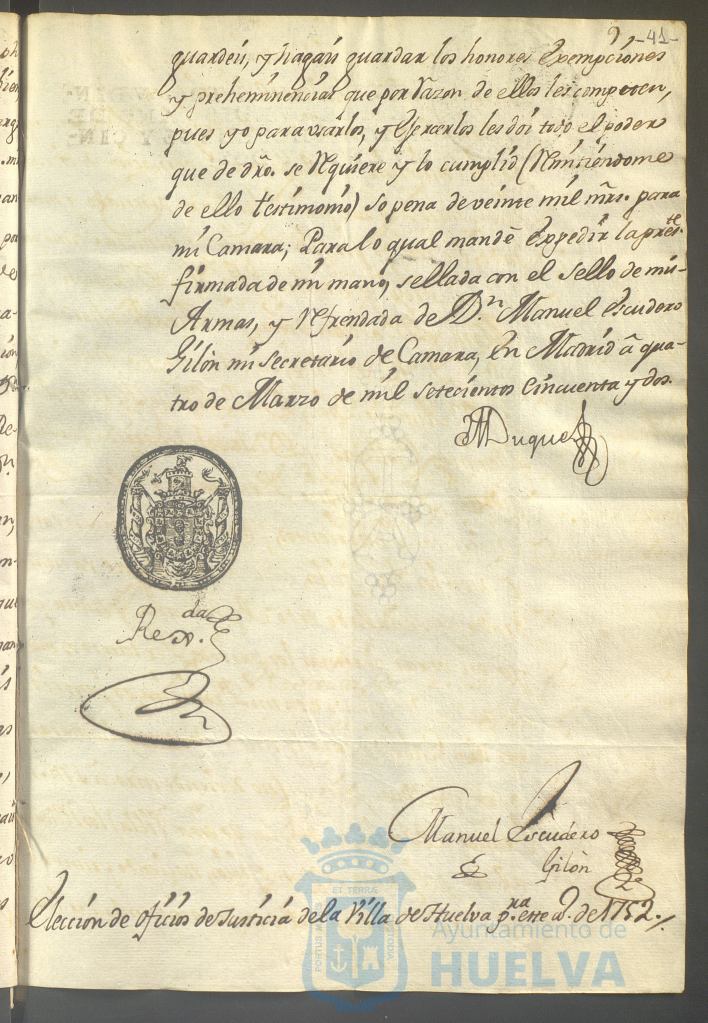 -41-
guardeis, y hagais guardar los honores exempciones
y preheminencias que por razon de ellos les competen,
pues yo para usarlos, y exercerlos les doi todo el poder
que de dro. se requiere y lo cumplid (remitiendome
de ello testimonio) so pena de veinte mil mrs. para
mi Camara; Para lo qual mandé expedir la prēste
firmada de mi mano, sellada con el sello de mis
Armas, y refrendada de Dn. Manuel Escudero
Gilòn mi secretario de Camara, En Madrid â qua-
tro de Marzo de mil setecientos cinquenta y dos.
Duque
Manuel Escudero
Gilòn
Elección de oficios de Justicia de la Villa de Huelva pna. este a. de 1752.
ET TERRAE
PORTUS MARIS
CUSTODIA
Ayuntamiento de
HUELVA